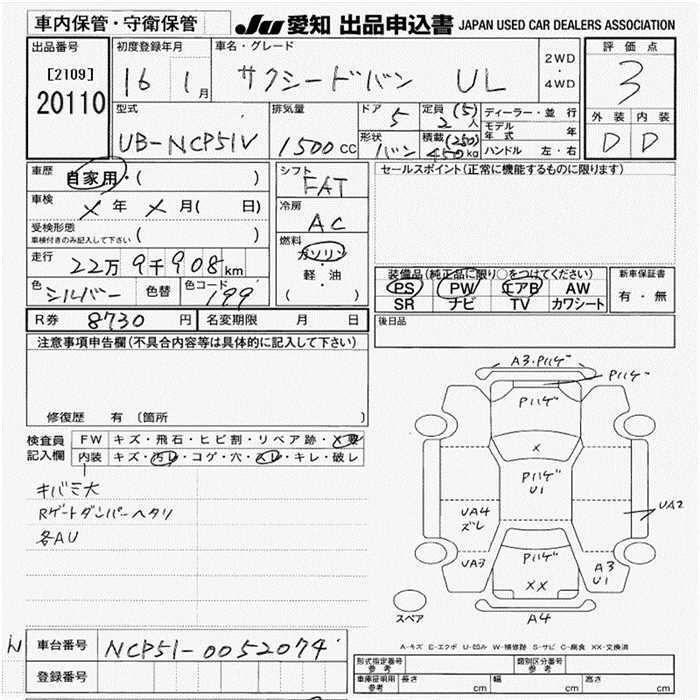 車内保管・守衛保管
JU 愛知 出品申込書 JAPAN USED CAR DEALERS ASSOCIATION
出品番号
[2109]
20110
初度登録年月
16 1月
車名・グレード
サクシードバン UL
2WD
・
4WD
評価点
3
外装 内装
D D
型式
UB-NCP51V
排気量
1500cc
ドア
5
形状
バン
定員 (5)
2人
積載 (250)
450kg
ディーラー・並行
モデル年式 年
ハンドル 左・右
車歴
自家用・( )
車検
メ年 メ月( 日)
受検形態
車検付きのみ記入して下さい ( )
走行
22万9千908km
色
シルバー
色替
色コード
199
シフト
FAT
冷房
AC
燃料
ガソリン
・
軽・油
( )
セールスポイント(正常に機能するものに限ります)
装備品(純正品に限り○をつけてください)
PS PW エアB AW
SR ナビ TV カワシート
新車保証書
有・無
R券 8730円 名変期限 月 日
後日品
注意事項申告欄(不具合内容等は具体的に記入して下さい)
修復歴 有 〔箇所 〕
検査員記入欄
FW キズ・飛石・ヒビ割・リペア跡・X要
内装 キズ・汚レ・コゲ・穴・スレ・キレ・破レ
キバミ大
Rゲートダンパーヘタリ
各AU
A3・Pハゲ
Pハゲ
Pハゲ
X
Pハゲ
U1
UA4
ズレ
UA2
UA3
Pハゲ
XX
A3
U1
A4
スペア
A-キズ E-エクボ U-凹み W-補修跡 S-サビ C-腐食 XX-交換済
車台番号 NCP51-0052074
登録番号
形式指定番号
参考
類別区分番号
参考
車庫証明用
参考
長さ cm 幅 cm 高さ cm